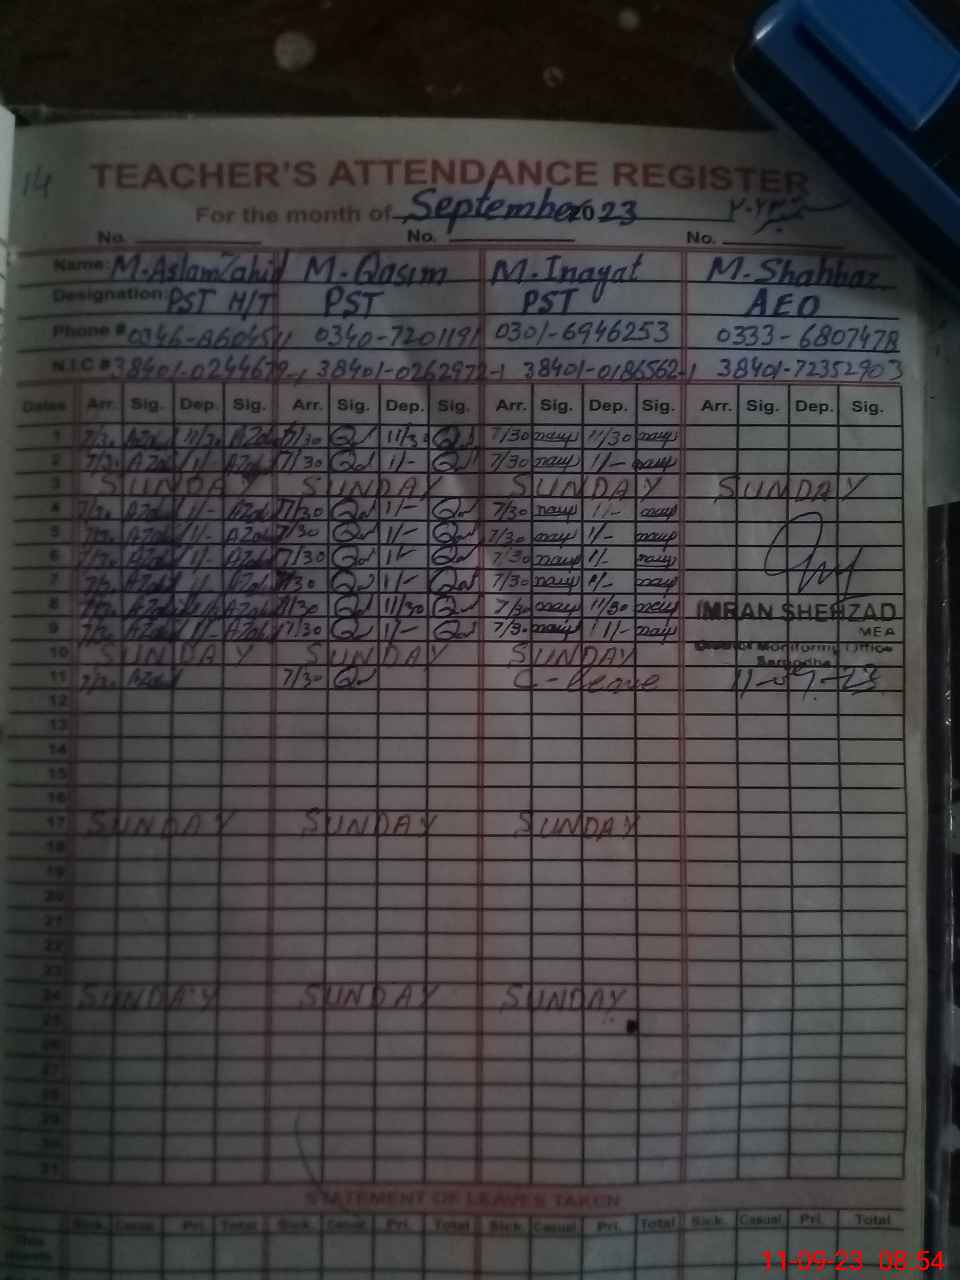 14
TEACHER'S ATTENDANCE REGISTER
For the month of September 2023
No. No. No.
Name: M.Aslam Zahid M.Qasim M.Inayat M.Shahbaz
Designation: PST H/T PST PST AEO
Phone # 0340-7201191 0301-6946253 0333-6807478
N.I.C # 38401-0244679-1 38401-0262972-1 38401-0186562-1 38401-72352903
Dates Arr. Sig. Dep. Sig. Arr. Sig. Dep. Sig. Arr. Sig. Dep. Sig. Arr. Sig. Dep. Sig.
1 7/30 AZahid 11/30 AZahid 7/30 11/30 7/30 11/30
2 7/30 AZahid 11/- AZahid 7/30 11/- 7/30 11/-
3 SUNDAY SUNDAY SUNDAY SUNDAY
4 7/30 AZahid 11/- AZahid 7/30 11/- 7/30 11/-
5 7/30 AZahid 11/- AZahid 7/30 11/- 7/30 11/-
6 7/30 AZahid 11/- AZahid 7/30 11/- 7/30 11/-
7 7/30 AZahid 11/- AZahid 7/30 11/- 7/30 11/-
8 7/30 AZahid AZahid 7/30 11/30 7/30 11/30 IMRAN SHEHZAD
9 7/30 AZahid 11/- AZahid 7/30 11/- 7/30 11/- MEA
10 SUNDAY SUNDAY SUNDAY District Monitoring Office
Sargodha
11 7/30 AZahid 7/30 C-leave 11-09-23
12
13
14
15
16
17 SUNDAY SUNDAY SUNDAY
18
19
20
21
22
23
24 SUNDAY SUNDAY SUNDAY
25
26
27
28
29
30
31
STATEMENT OF LEAVES TAKEN
Sick. Casual Pri. Total Sick. Casual Pri. Total Sick. Casual Pri. Total Sick. Casual Pri. Total
This
Month
11-09-23 08:54